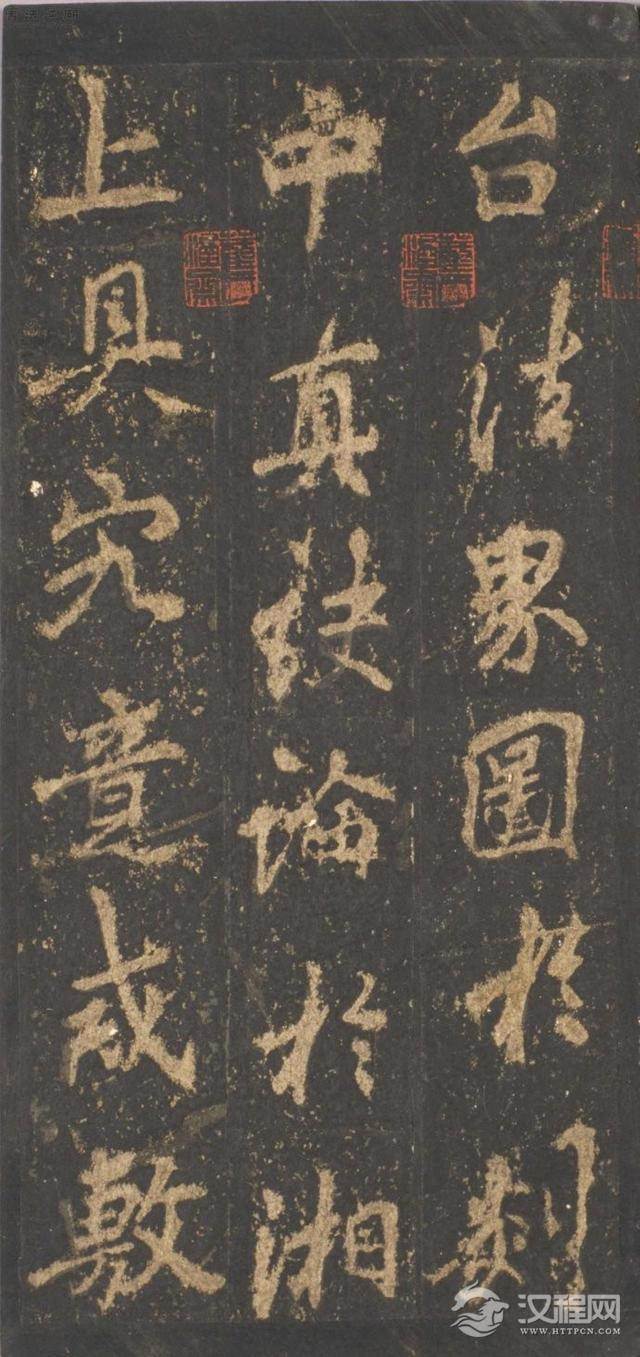 台法界圖於剡
中真訣論於湘
上具究竟戒敷
汉程网
WWW.HTTPCN.COM